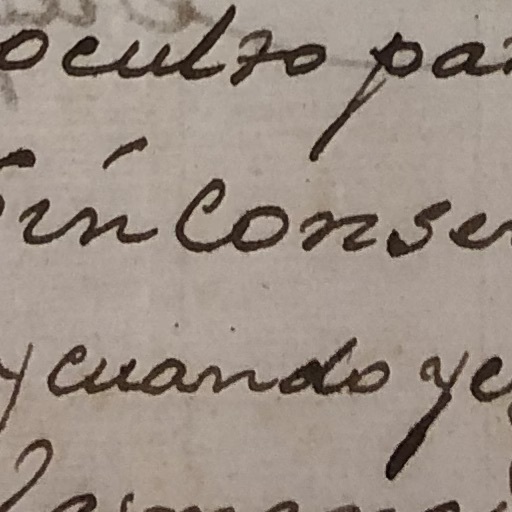 oculto pa
Sin conse
y cuando ye